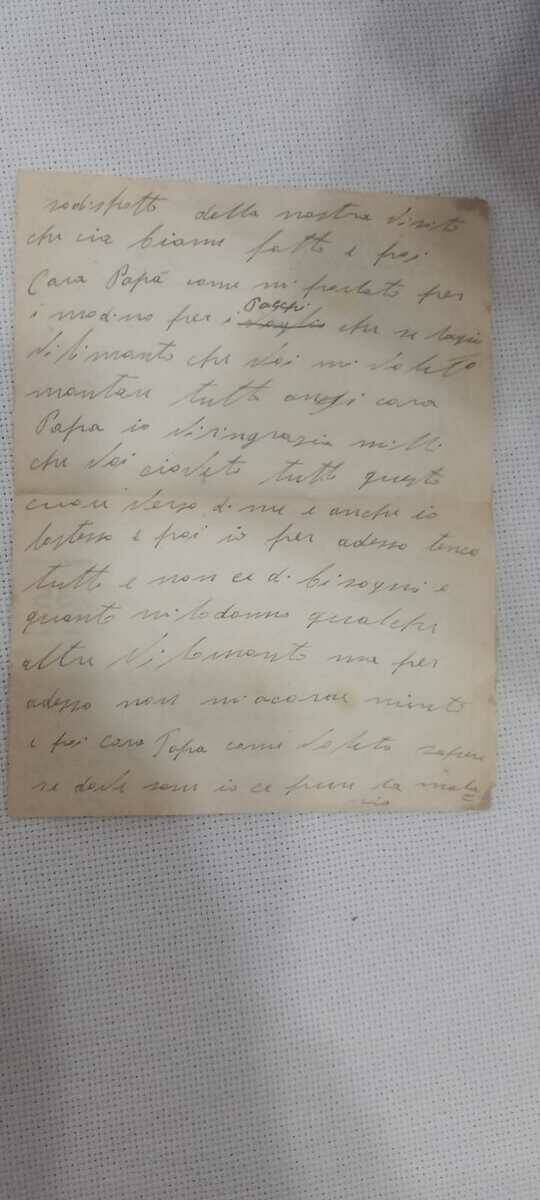 sodisfatto della nostra visita
che cia biamo fatto e poi
Cara Papà come mi parlato per
i modino per i Pacchi che se
vi dimanto che voi mi voleto
mantare tutto anzi cara
Papa io vi ringrazia milli
che voi ciaveto tutto questo
cuori verso di me e anche io
lostesso e poi io per adesso tenco
tutto e non ce di bisogni e
quanto mi lodanno qualche
altre vi lomanto ma per
adesso non mi acorre niento
e poi cara Papa come voleto sapere
se dove sono io ce pure la mala
=
ria